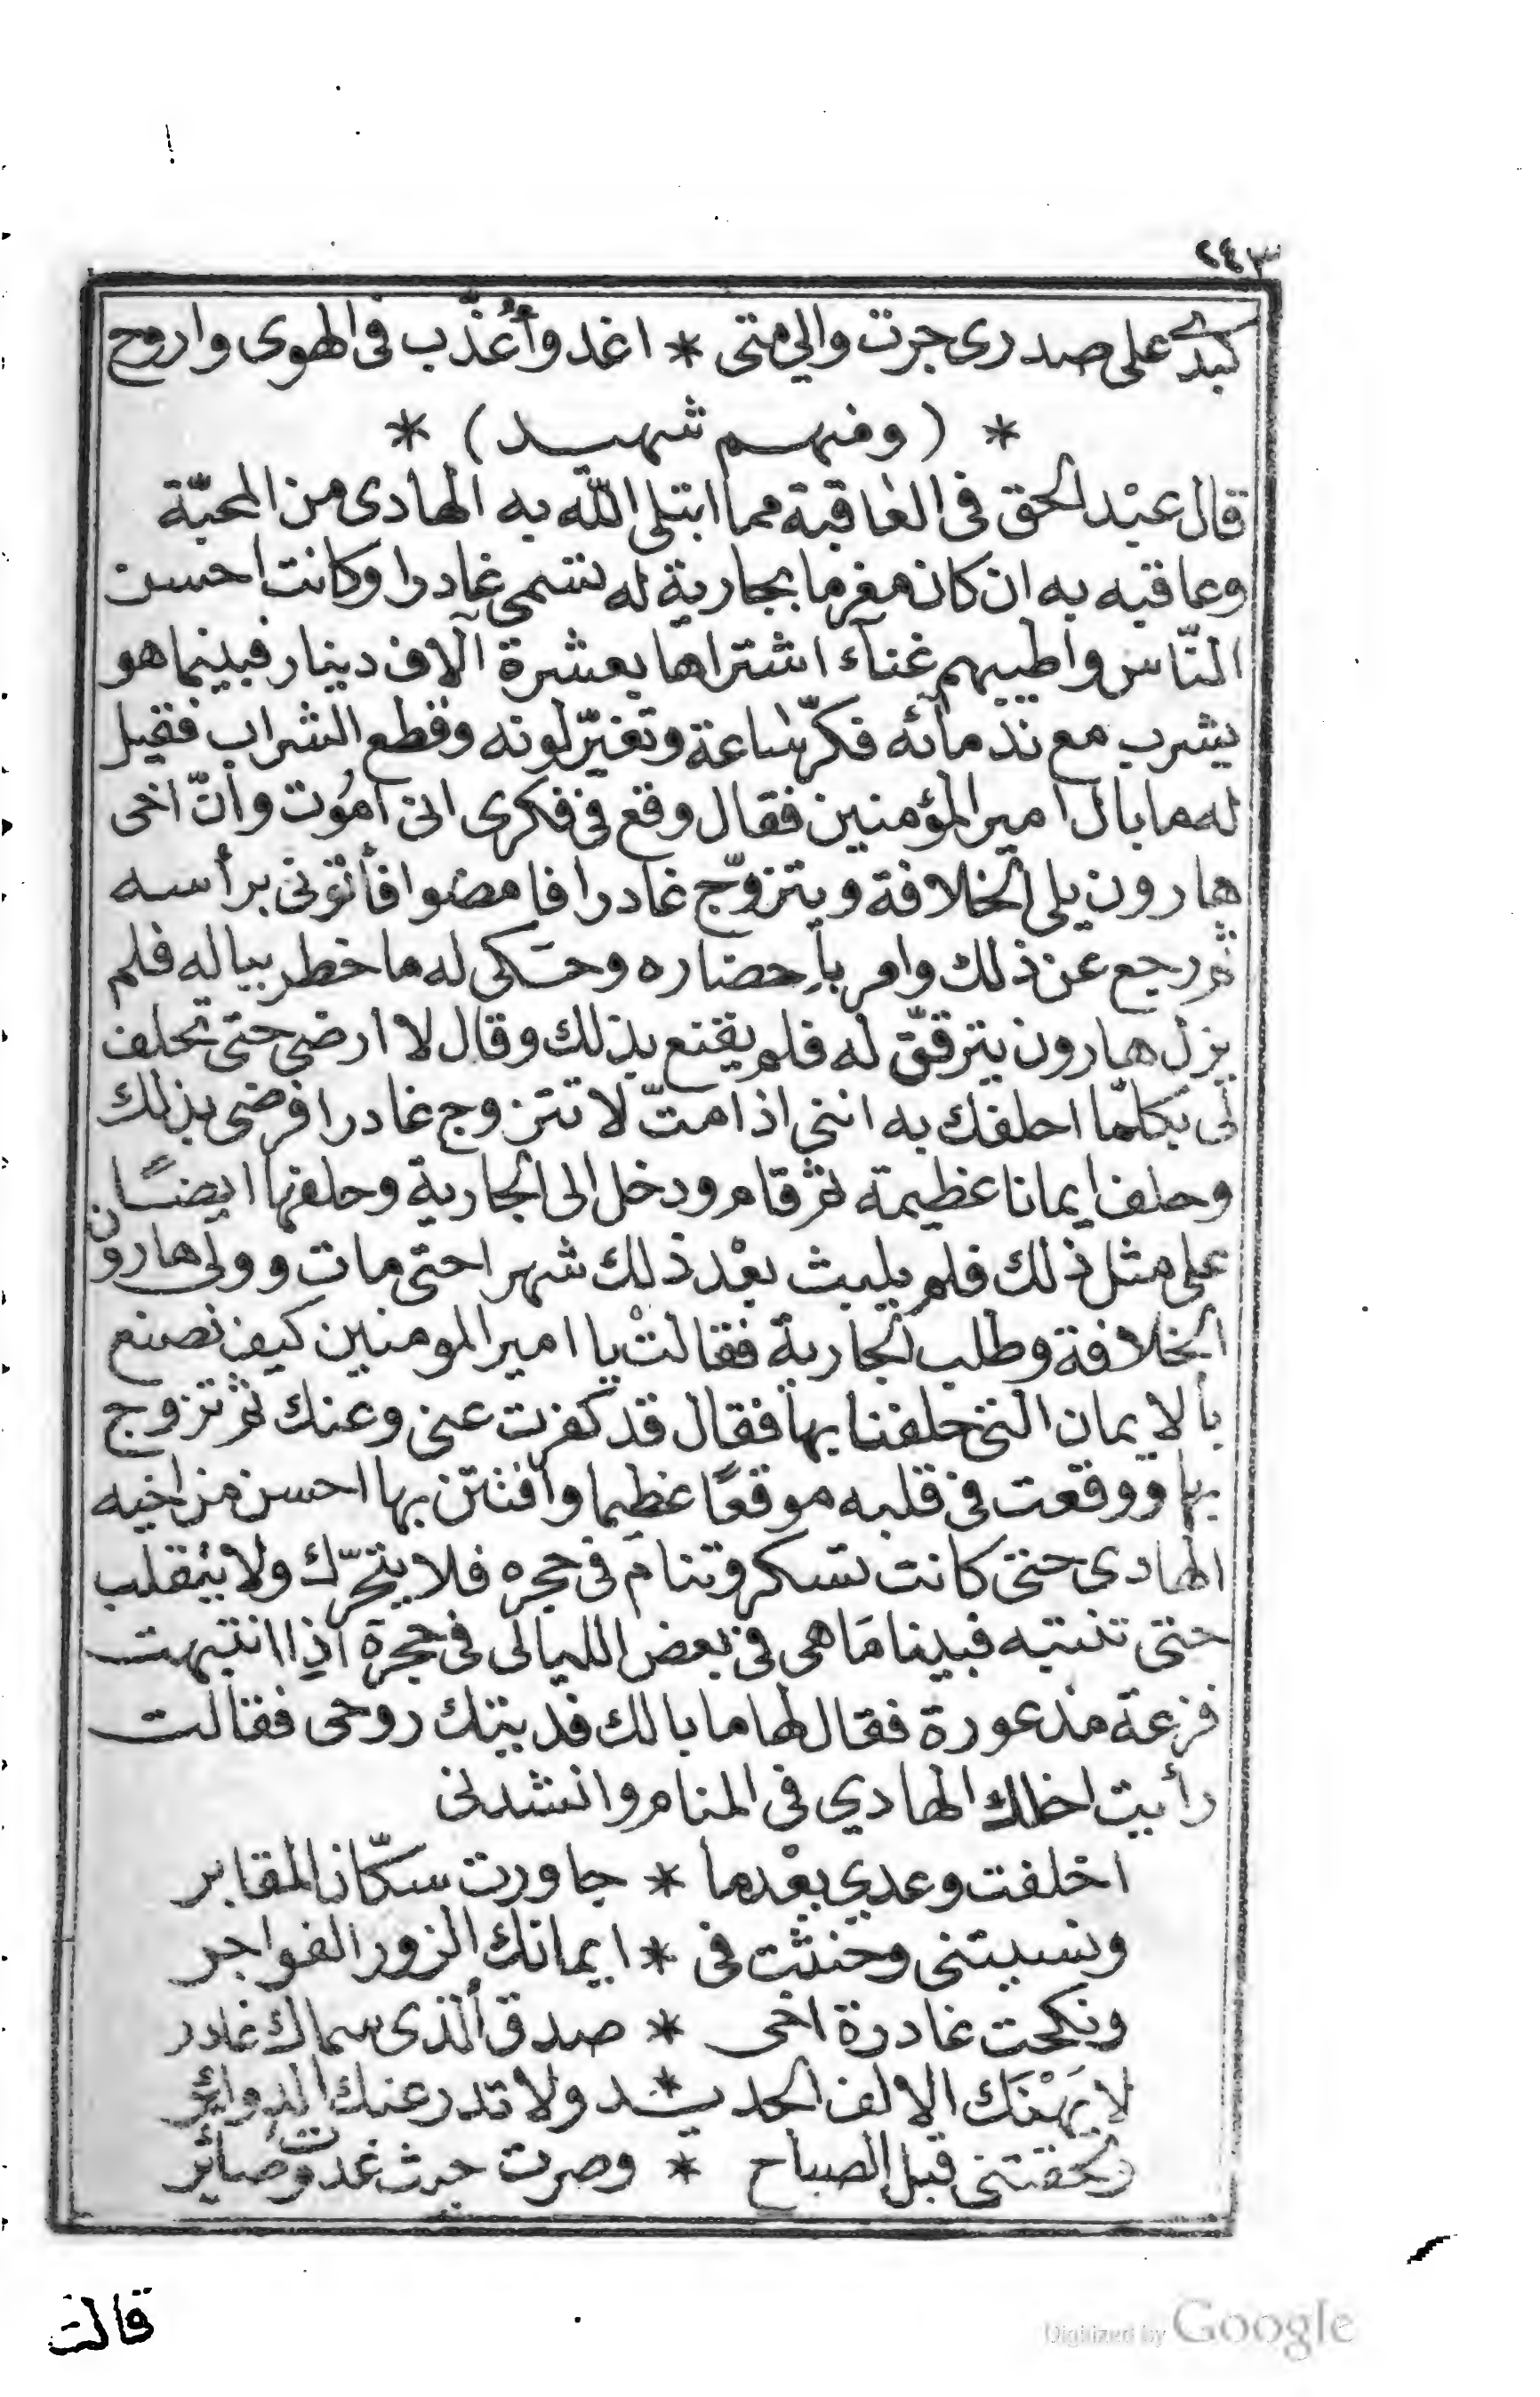 ٢٤٣
كبدي على صدرى جرت والى متى * اغدو أُعُذّب فى الهوى واروح
* (ومنهم شهيد) *
قال عبْد الحق فى العاقبة مما ابتلى الله به الهادى من المحبّة
وعاقبه به ان كان مغرما بجارية له تسمى غادرا وكانت احسن
النّاس واطيبهم غنآء اشتراها بعشرة آلاف دينار فبينما هو
يشرب مع ندمآئه فكرّ ساعة وتغيّر لونه وقطع الشراب فقيل
له ما بال امير المؤمنين فقال وقع فى فكرى انى امُوت وانّ اخى
هارون يلى الخلافة ويتزوّج غادرا فامضوا فأتونى برأسه
ثم رجع عن ذلك وامر بإحضاره وحكى له ما خطر بباله فلم
يزل هارون يترقّق له فلم يقنع بذلك وقال لا ارضى حتى تحلف
لى بكلمّا احلفك به اننى اذا متّ لا تتزوج غادرا فرضى بذلك
وحلف ايمانا عظيمة ثم قام ودخل الى الجارية وحلفها ايضًا
على مثل ذلك فلم يلبث بعْد ذلك شهرا حتى مات وولى هارون
الخلافة وطلب الجارية فقالتْ يا امير المومنين كيف نصنع
بالايمان التى حلفنا بها فقال قد كفرت عنى وعنك ثم تزوج
بها ووقعت فى قلبه موقعًا عظيما وافتتن بها احسن من اخيه
الهادى حتى كانت تسكر وتنام فى حجره فلا يتحرّك ولا ينقلب
حتى تنتبه فبينما هى فى بعض الليالى فى حجرة اذا انتبهت
فزعة مذعورة فقال لها ما بالك فديتك روحى فقالت
رأيت اخاك الهادي فى المنام وانشدنى
اخلفت وعدي بعْدما * جاورت سكّان المقابر
ونسيتنى وحنثت فى * ايمانك الزور الفواجر
ونكحت غادرة اخى * صدق الذى سماك غادر
لا يَهْنَك الالف الجديـ * ـد ولا تدر عنك الدوائر
ولحقتنى قبل الصباح * وصرت حيث غدوت صائر
قالت
Digitized by Google